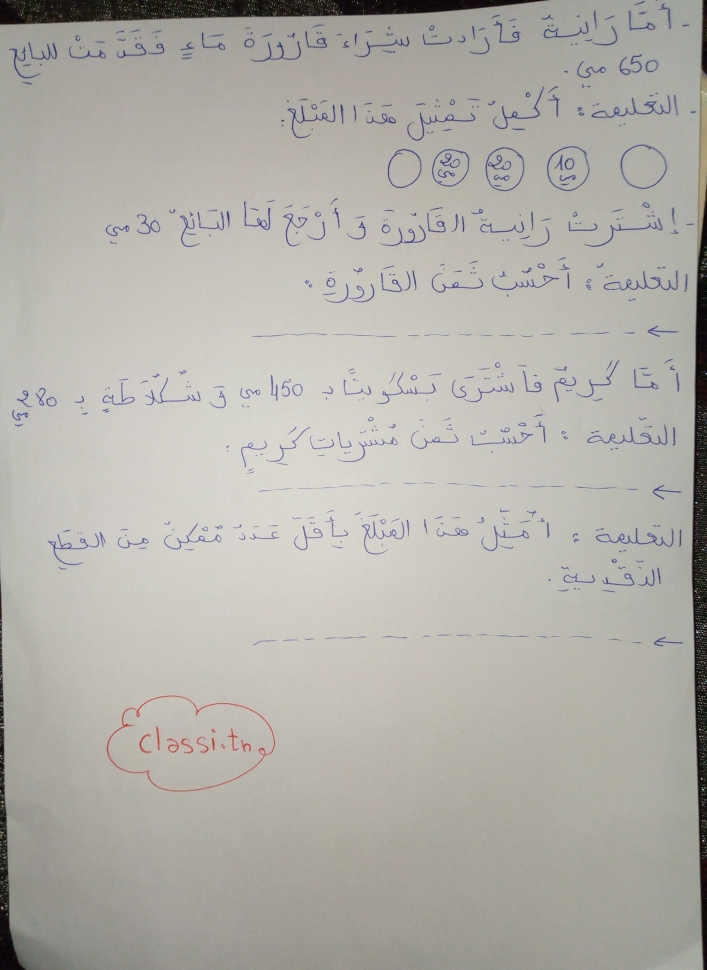 - أَمَّا رَانِيَةُ فَأَرَادتْ شِرَاءَ قَارُورَةَ مَاءٍ فَقَدَّمَتْ للبائع
650 مي.
- التعليمة : أُكْمِلُ تَمْثِيلَ هَذَا المَبْلَغِ.
10 مي 20 مي 20 مي
- إشْتَرَتْ رَانِيةُ القَارُورَةَ وَ أَرْجَعَ لَهَا البَائِعُ 30 مي
التعليمة : أَحْسُبُ ثَمَنَ القَارُورَةِ .
←
أَمَّا كَرِيمٌ فاَشْتَرَى بَسْكوِيتًا بـ 450 مي وَ شُكُلَاطَةٍ بِـ 280 مي
التعليمة : أَحْسُبُ ثَمَنَ مُشْتَرَيَاتِ كَرِيمٍ .
←
التعليمة : أُمَثِّلُ هَذَا المَبْلَغَ بِأَقَلِّ عَدَدٍ مُمْكِنٍ مِنَ القطَعِ
النَّقْدِيةِ .
←
classi.tn